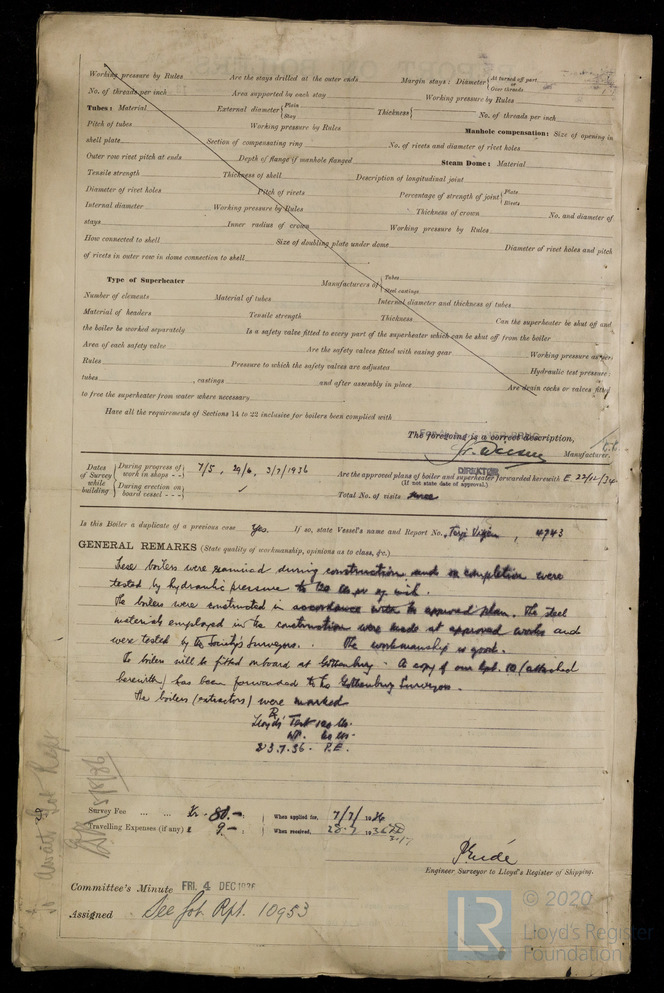 Working pressure by Rules Are the stays drilled at the outer ends Margin stays: Diameter { At turned off part, or Over threads
No. of threads per inch Area supported by each stay Working pressure by Rules
Tubes: Material External diameter { Plain Stay Thickness { No. of threads per inch
Pitch of tubes Working pressure by Rules Manhole compensation: Size of opening in
shell plate Section of compensating ring No. of rivets and diameter of rivet holes
Outer row rivet pitch at ends Depth of flange if manhole flanged Steam Dome: Material
Tensile strength Thickness of shell Description of longitudinal joint
Diameter of rivet holes Pitch of rivets Percentage of strength of joint { Plate Rivets
Internal diameter Working pressure by Rules Thickness of crown No. and diameter of
stays Inner radius of crown Working pressure by Rules
How connected to shell Size of doubling plate under dome Diameter of rivet holes and pitch
of rivets in outer row in dome connection to shell
Type of Superheater Manufacturers of { Tubes Steel castings
Number of elements Material of tubes Internal diameter and thickness of tubes
Material of headers Tensile strength Thickness Can the superheater be shut off and
the boiler be worked separately Is a safety valve fitted to every part of the superheater which can be shut off from the boiler
Area of each safety valve Are the safety valves fitted with easing gear Working pressure as per
Rules Pressure to which the safety valves are adjusted Hydraulic test pressure:
tubes , castings and after assembly in place Are drain cocks or valves fitted
to free the superheater from water where necessary
Have all the requirements of Sections 14 to 22 inclusive for boilers been complied with
The foregoing is a correct description,
Manufacturer.
DIREKTØR
Dates of Survey while building { During progress of work in shops - - 7/5, 29/6, 3/7/1936 Are the approved plans of boiler and superheater forwarded herewith E. 22/12/34
During erection on board vessel - - - (If not state date of approval.)
Total No. of visits
Is this Boiler a duplicate of a previous case Yes. If so, state Vessel's name and Report No. Terje Viken, 4743
GENERAL REMARKS (State quality of workmanship, opinions as to class, &c.)
These boilers were examined during construction and on completion were
tested by hydraulic pressure to
The boilers were constructed in accordance with the approved plan. The steel
materials employed in the construction were made at approved works and
were tested by the Society's Surveyors. The workmanship is good.
The boilers will be fitted onboard at Gothenburg. A copy of our Rpt. (attached
herewith) has been forwarded to the Gothenburg Surveyors.
The boilers (extractors) were marked
Lloyd's Test 120 lbs.
WP. 60 lbs.
23.7.36. P.E.
Survey Fee ... ... Kr. 80.- When applied for, 7/7/1936
Travelling Expenses (if any) £ 9.- When received, 28.7.1936
Engineer Surveyor to Lloyd's Register of Shipping.
Committee's Minute FRI. 4 DEC 1936
Assigned See Got. Rpt. 10953
© 2020
LR
Lloyd's Register
Foundation